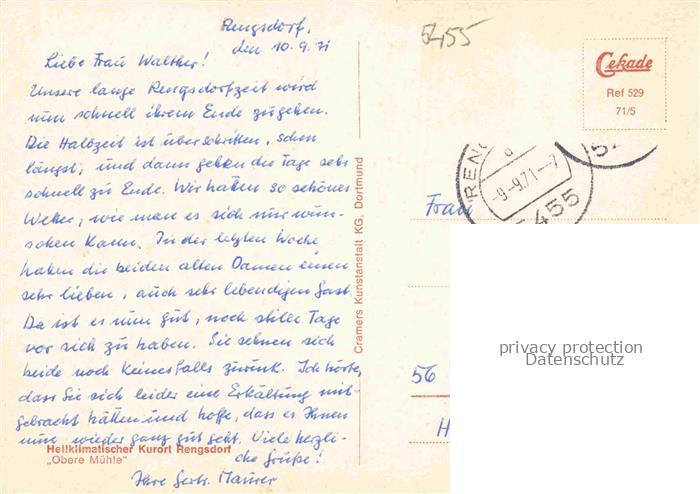 Rengsdorf,
den 10.9.71
Liebe Frau Walther!
Unsere lange Rengsdorfzeit wird
nun schnell ihrem Ende zugehen.
Die Halbzeit ist überschritten, schon
längst, und dann gehen die Tage sehr
schnell zu Ende. Wir hatten so schönes
Wetter, wie man es sich nur wün-
schen kann. In der letzten Woche
haben die beiden alten Damen einen
sehr lieben, auch sehr lebendigen Gast.
Da ist es nun gut, noch stille Tage
vor sich zu haben. Sie sehnen sich
beide noch keinesfalls zurück. Ich hörte,
dass Sie sich leider eine Erkältung mit-
gebracht hätten und hoffe, dass es Ihnen
nun wieder ganz gut geht. Viele herzli-
che Grüße!
Ihre Gertr. Maurer
Heilklimatischer Kurort Rengsdorf
„Obere Mühle"
Cramers Kunstanstalt KG, Dortmund
5455
Cekade
Ref 529
71/5
RENG
a
-9.-9.71--7
5455
52
Frau
privacy protection
Datenschutz
56
H